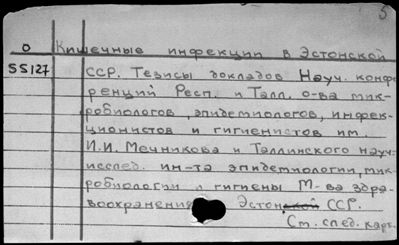 5
О Кишечные инфекции в Эстонской
55127 ССР. Тезисы докладов Науч. конфе
ренций Респ. и Талл. о-ва мик-
робиологов, эпидемиологов, инфек-
ционистов и гигиенистов им.
И.И. Мечникова и Таллинского науч-
исслед. ин-та эпидемиологии, мик-
робиологии и гигиены М-ва здра-
воохранения Эстонской ССР.
См. след. карт.